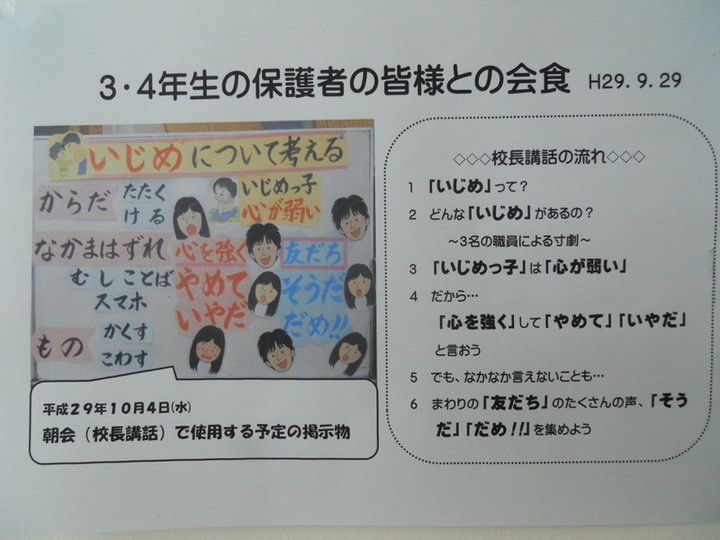 3・4年生の保護者の皆様との会食 H29.9.29
いじめについて考える
からだ
たたく
ける
いじめっ子
心が弱い
なかまはずれ
むし ことば
スマホ
心を強く
やめて
いやだ
友だち
そうだ
だめ!!
もの
かくす
こわす
平成29年10月4日(水)
朝会（校長講話）で使用する予定の掲示物
◇◇◇校長講話の流れ◇◇◇
1 「いじめ」って？
2 どんな「いじめ」があるの？
～3名の職員による寸劇～
3 「いじめっ子」は「心が弱い」
4 だから…
「心を強く」して「やめて」「いやだ」
と言おう
5 でも、なかなか言えないことも…
6 まわりの「友だち」のたくさんの声、「そう
だ」「だめ!!」を集めよう